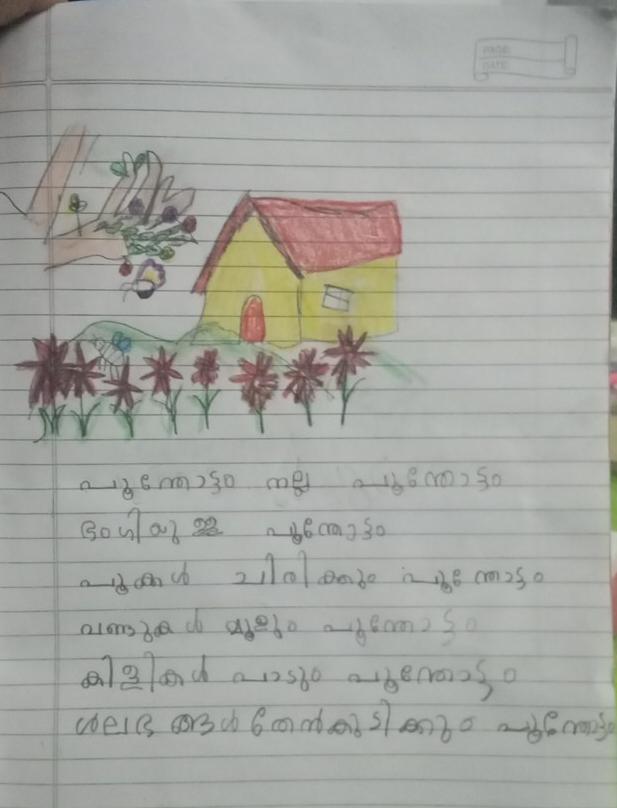 PAGE:
DATE:
പൂന്തോട്ടം നല്ല പൂന്തോട്ടം
ഭംഗിയുള്ള പൂന്തോട്ടം
പൂക്കൾ ചിരിക്കും പൂന്തോട്ടം
വണ്ടുകൾ മൂളും പൂന്തോട്ടം
കിളികൾ പാടും പൂന്തോട്ടം
ശലഭങ്ങൾ തേൻകുടിക്കും പൂന്തോട്ടം